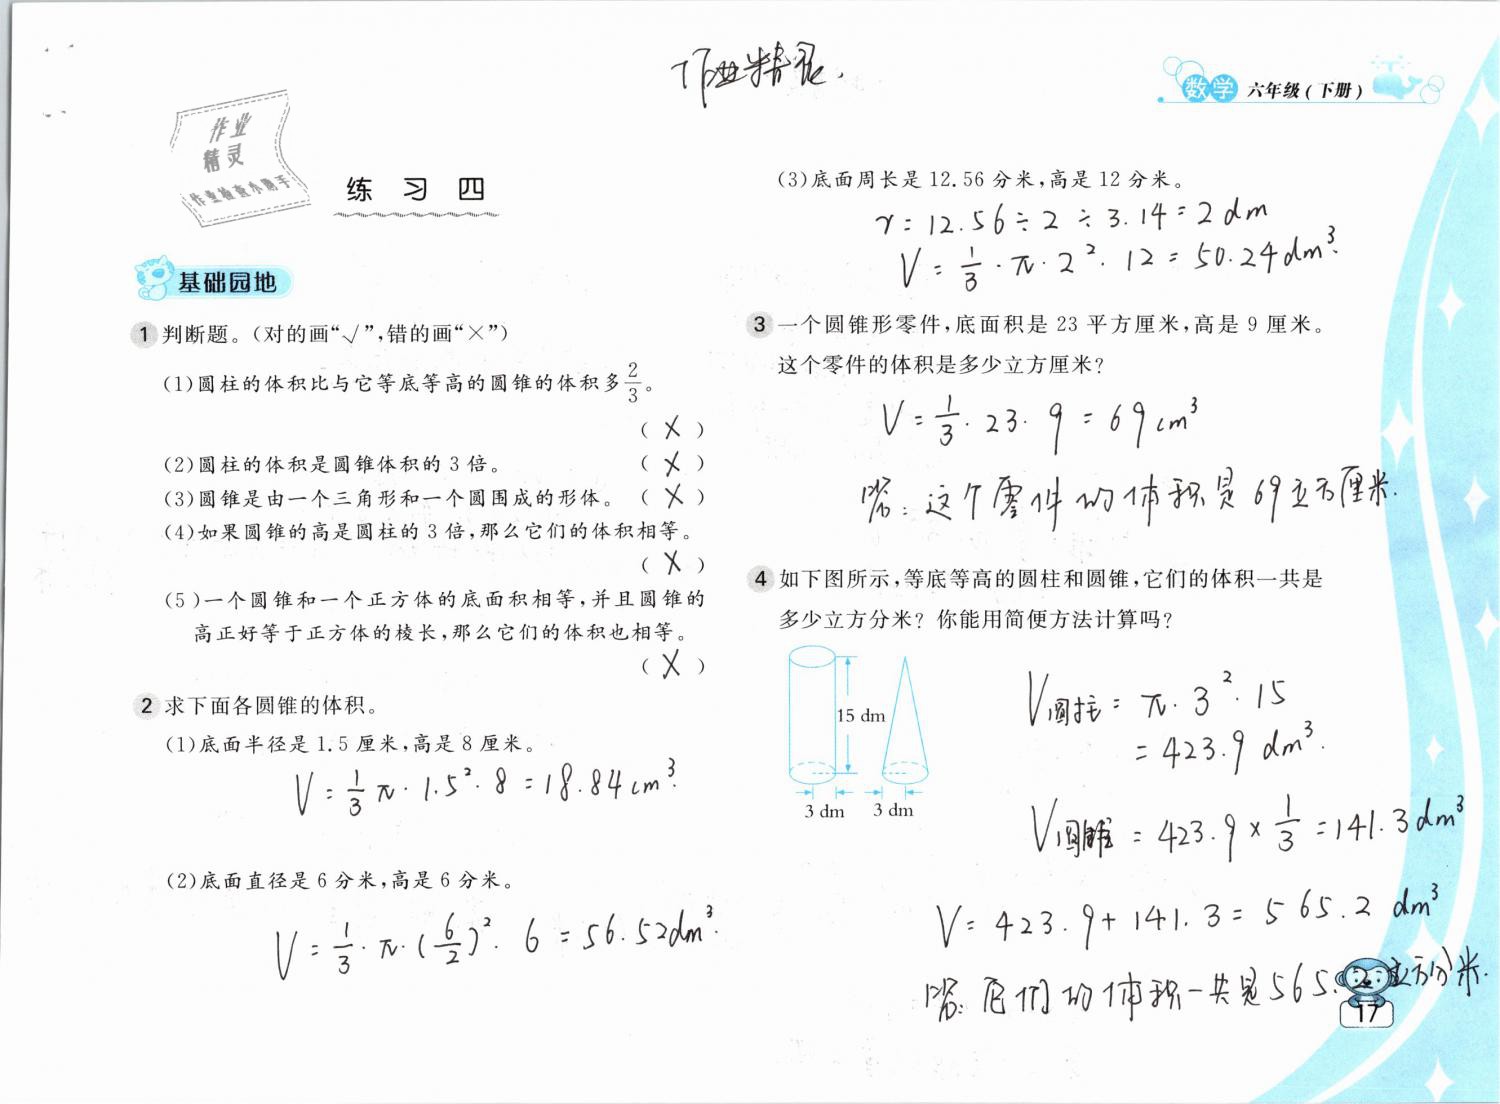 作业精灵.
数学 六年级(下册)
作业
精灵
作业检查小助手
练 习 四
基础园地
1 判断题。(对的画“√”,错的画“×”)
(1)圆柱的体积比与它等底等高的圆锥的体积多2/3。
( × )
(2)圆柱的体积是圆锥体积的 3 倍。 ( × )
(3)圆锥是由一个三角形和一个圆围成的形体。 ( × )
(4)如果圆锥的高是圆柱的 3 倍,那么它们的体积相等。
( × )
(5)一个圆锥和一个正方体的底面积相等,并且圆锥的
高正好等于正方体的棱长,那么它们的体积也相等。
( × )
2 求下面各圆锥的体积。
(1)底面半径是 1.5 厘米,高是 8 厘米。
V = 1/3 π · 1.5² · 8 = 18.84 cm³.
(2)底面直径是 6 分米,高是 6 分米。
V = 1/3 · π · (6/2)² · 6 = 56.52dm³.
(3)底面周长是 12.56 分米,高是 12 分米。
r = 12.56 ÷ 2 ÷ 3.14 = 2 dm
V = 1/3 · π · 2² · 12 = 50.24 dm³.
3 一个圆锥形零件,底面积是 23 平方厘米,高是 9 厘米。
这个零件的体积是多少立方厘米?
V = 1/3 · 23 · 9 = 69 cm³
答: 这个零件的体积是 69 立方厘米.
4 如下图所示,等底等高的圆柱和圆锥,它们的体积一共是
多少立方分米? 你能用简便方法计算吗?
15 dm
3 dm 3 dm
V圆柱 = π · 3² · 15
= 423.9 dm³.
V圆锥 = 423.9 × 1/3 = 141.3 dm³
V = 423.9 + 141.3 = 565.2 dm³
答: 它们的体积一共是 565.2 立方分米.
17